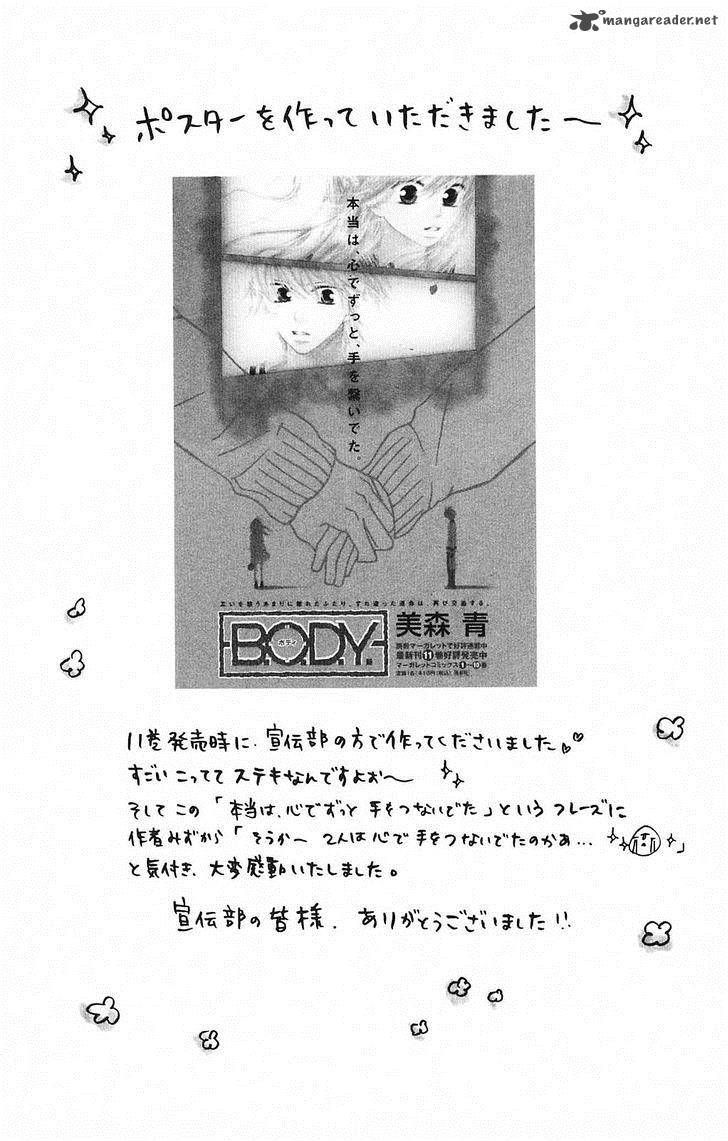 mangareader.net
ポスターを作っていただきました〜
本当は、心でずっと、手を繋いでた。
互いを想うあまりに離れたふたり。すれ違った運命は 再び交差する。
B.O.D.Y.
ボディ
美森 青
別冊マーガレットで好評連載中
最新刊11巻好評発売中
マーガレットコミックス1〜10巻
11巻発売時に、宣伝部の方で作ってくださいました
すごいこっててステキなんですよぉ〜
そしてこの「本当は、心でずっと手をつないでた」というフレーズに
作者みずから「そうかー 2人は心で手をつないでたのかぁ…」
と気付き、大変感動いたしました。
宣伝部の皆様、ありがとうございました!!